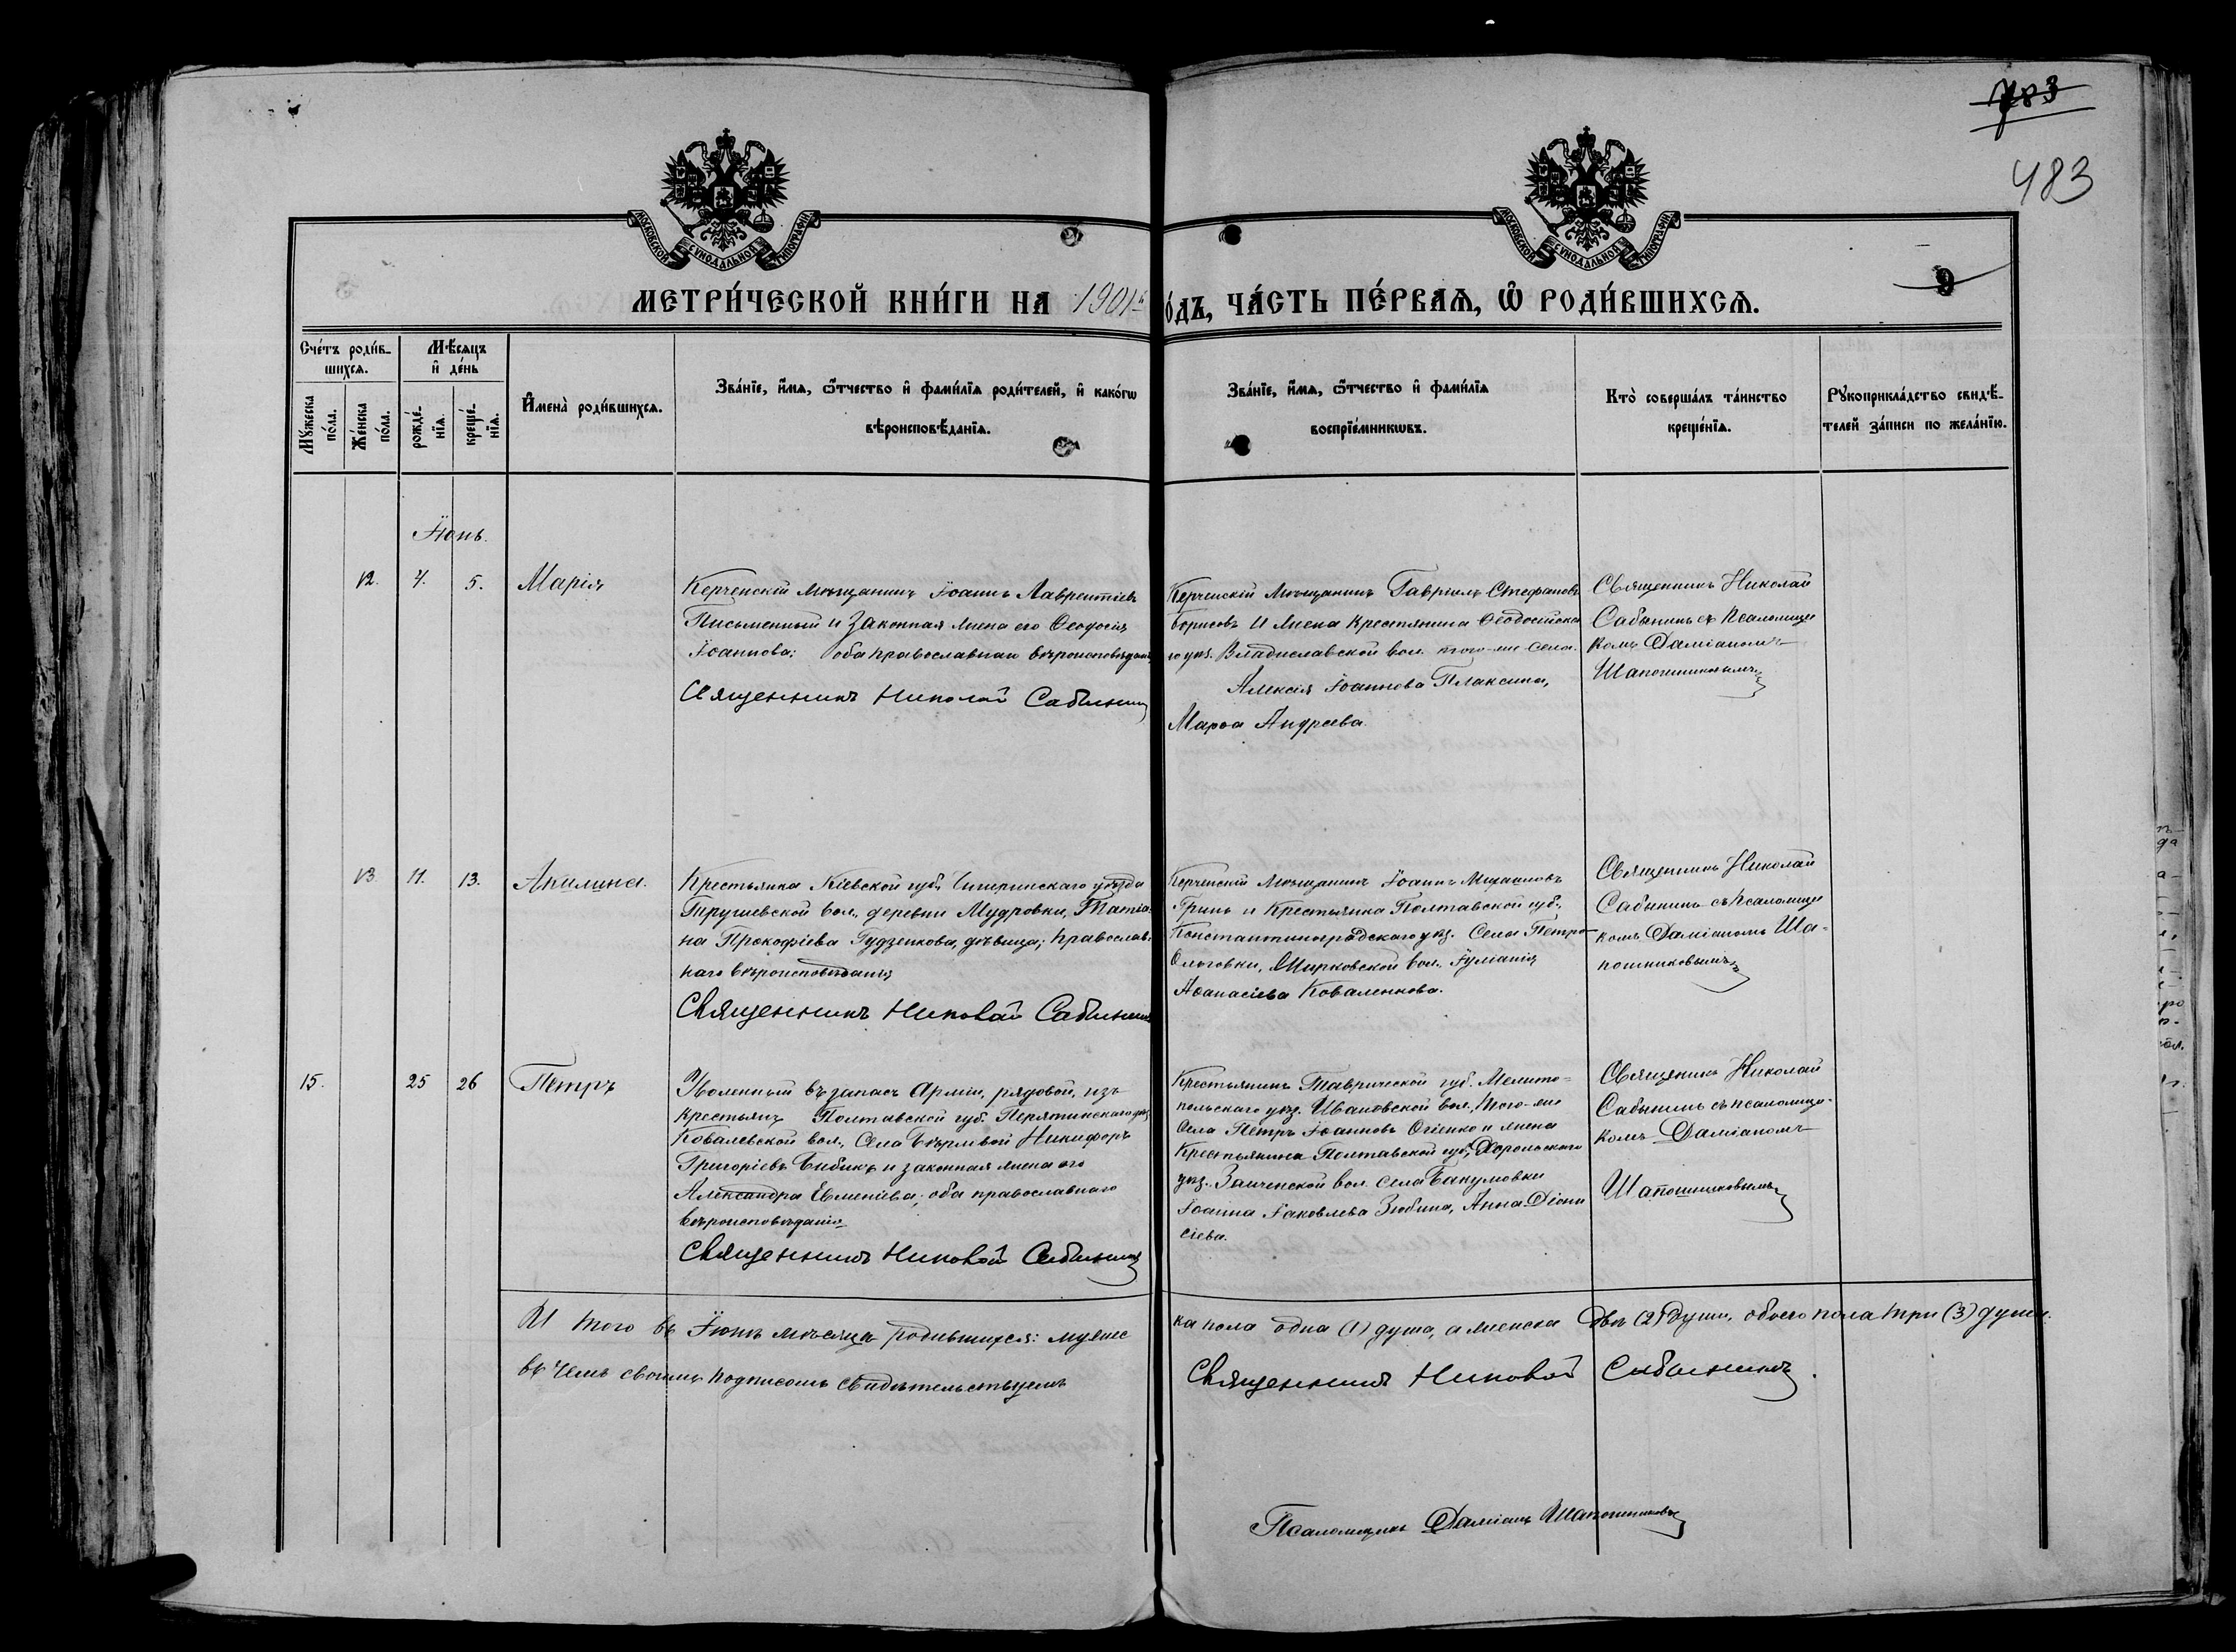 783
483
МОСКОВСКОЙ СѴНОДАЛЬНОЙ ТИПОГРАФІИ
МОСКОВСКОЙ СѴНОДАЛЬНОЙ ТИПОГРАФІИ
9
МЕТРИ́ЧЕСКОЙ КНИ́ГИ НА 1901 й
О́ДЪ, ЧА́СТЬ ПЕ́РВАѦ, Ѿ РОДИ́ВШИХСѦ.
Сче́тъ роди́в-
шихсѧ.
Мѣ́сѧцъ
и҆ де́нь
Мꙋ́жеска
по́ла.
Же́нска
по́ла.
рожде́-
нїѧ.
креще́-
нїѧ.
И҆мена̀ роди́вшихсѧ.
Зва́нїе, и҆́мѧ, ѻ҆́тчество и҆ фами́лїѧ роди́телей, и҆ како́гѡ
вѣроисповѣ́данїѧ.
Зва́нїе, и҆́мѧ, ѻ҆́тчество и҆ фами́лїѧ
воспрїе́мникѡвъ.
Кто̀ соверша́лъ та́инство
креще́нїѧ.
Рꙋкоприкла́дство свидѣ́-
телей за́писи по жела́нїю.
Іюнь.
12. 4. 5. Марія
Керченскій мѣщанинъ Іоаннъ Лаврентіевъ
Письменный и законная жена его Ѳеодосія
Іоаннова; оба православнаго вѣроисповѣданія
Священникъ Николай Сабынинъ
Керченскій мѣщанинъ Гавріилъ Стефановъ
Борисовъ и жена крестьянина Ѳеодосійска
го уѣз. Владиславской вол. того-же села
Алексія Іоаннова Плаксина,
Марѳа Андреева.
Священникъ Николай
Сабынинъ съ псаломщи
комъ Даміаномъ
Шапошниковымъ
13. 11. 13. Акилина.
Крестьянка Кіевской губ. Чигиринскаго уѣзда
Трушевской вол., деревни Мудровки, Татіа-
на Прокофіева Гудзенкова, дѣвица; православ-
наго вѣроисповѣданія
Священникъ Николай Сабынинъ
Керченскій мѣщанинъ Іоаннъ Михаиловъ
Гринь и крестьянка Полтавской губ.,
Константиноградскаго уѣз. Села Петро-
Ольговки, Ширковской вол. Іуліанія
Аѳанасіева Коваленкова.
Священникъ Николай
Сабынинъ съ псаломщи
комъ Даміаномъ Ша-
пошниковымъ
15. 25 26 Петръ
Уволенный въ запасъ Арміи, рядовой, изъ
крестьянъ Полтавской губ. Пирятинскаго уѣз.
Ковалевской вол., Села
Никифоръ
Григоріевъ Бибикъ и законная жена его
Александра Евменіева; оба православнаго
вѣроисповѣданія
Священникъ Николай Сабынинъ
Крестьянинъ Таврической губ. Мелито-
польскаго уѣз. Ивановской вол., того-же
Села Петръ Іоанновъ Огіенко и жена
Крестьянина Полтавской губ., Хорольскаго
уѣз. Заиченской вол. села Бакумовки
Іоанна Іаковлева Зюбина, Анна Діони
сіева.
Священникъ Николай
Сабынинъ съ псаломщи-
комъ Даміаномъ
Шапошниковымъ
И того въ Іюнѣ мѣсяцѣ родившихся: мужес
ка пола одна (1) душа, а женска двѣ (2) души, обоего пола три (3) души.
въ чемъ своимъ подписомъ свидѣтельствуемъ
Священникъ Николай Сабынинъ.
Псаломщикъ Даміанъ Шапошниковъ